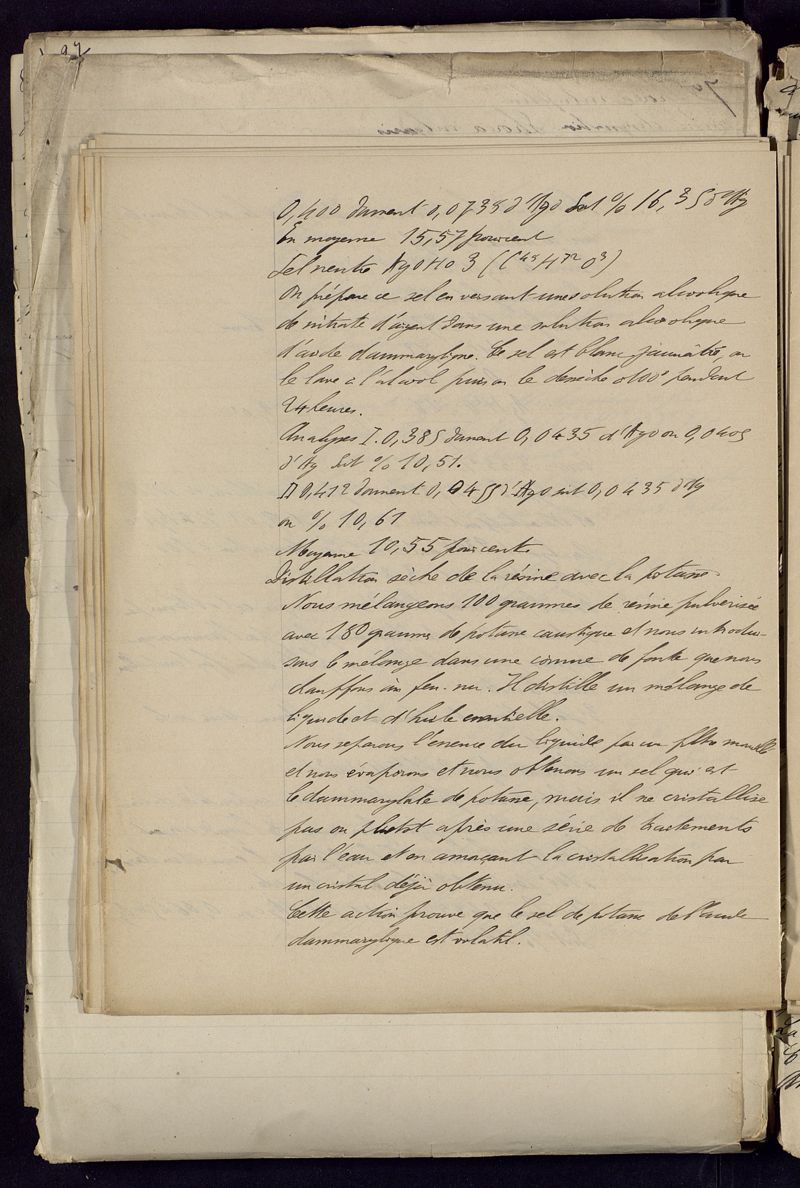 97
0,400 donnent 0,0738 d'Ago Soit % 16,358 d'Ag
En moyenne 15,57 pourcent
Sel neutre AgoHo3 (C45H72O3)
On prépare ce sel en versant une solution alcoolique
de nitrate d'argent dans une solution alcoolique
d'acide dammarylique. Ce sel est blanc jaunâtre, on
le lave à l'alcool puis on le dessèche à 100° pendant
24 heures.
Analyses I. 0,385 donnent 0,0435 d'Ago ou 0,0405
d'Ag Soit % 10,51.
II 0,412 donnent 0,0455 d'Ago soit 0,0435 d'Ag
ou % 10,61
Moyenne 10,55 pourcent.
Distillation sèche de la résine avec la potasse.
Nous mélangeons 100 grammes de résine pulverisée
avec 180 grammes de potasse caustique et nous introdui-
sons le mélange dans une cornue de fonte que nous
chauffons à feu nu. Il distille un mélange de
liquide et d'huile essentielle.
Nous separons l'essence du liquide par un filtre mouillé
et nous évaporons et nous obtenons un sel qui est
le dammarylate de potasse, mais il ne cristallise
pas ou plutot après une série de traitements
par l'eau et en amorçant la cristallisation par
un cristal déjà obtenu.
Cette action prouve que le sel de potasse de l'acide
dammarylique est volatil.